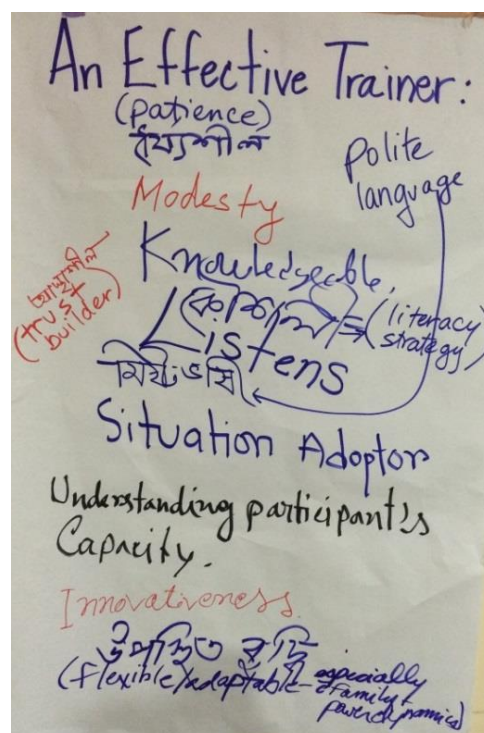 An Effective Trainer:
(patience)
ধৈয্যশীল
Polite
language
Modesty
Knowledgeable,
(trust
builder)
(literacy
strategy)
Listens
Situation Adoptor
Understanding participant's
Capacity.
Innovativeness
উপস্থিত বুদ্ধি
(flexible/adaptable- especially
family +
power dynamics)